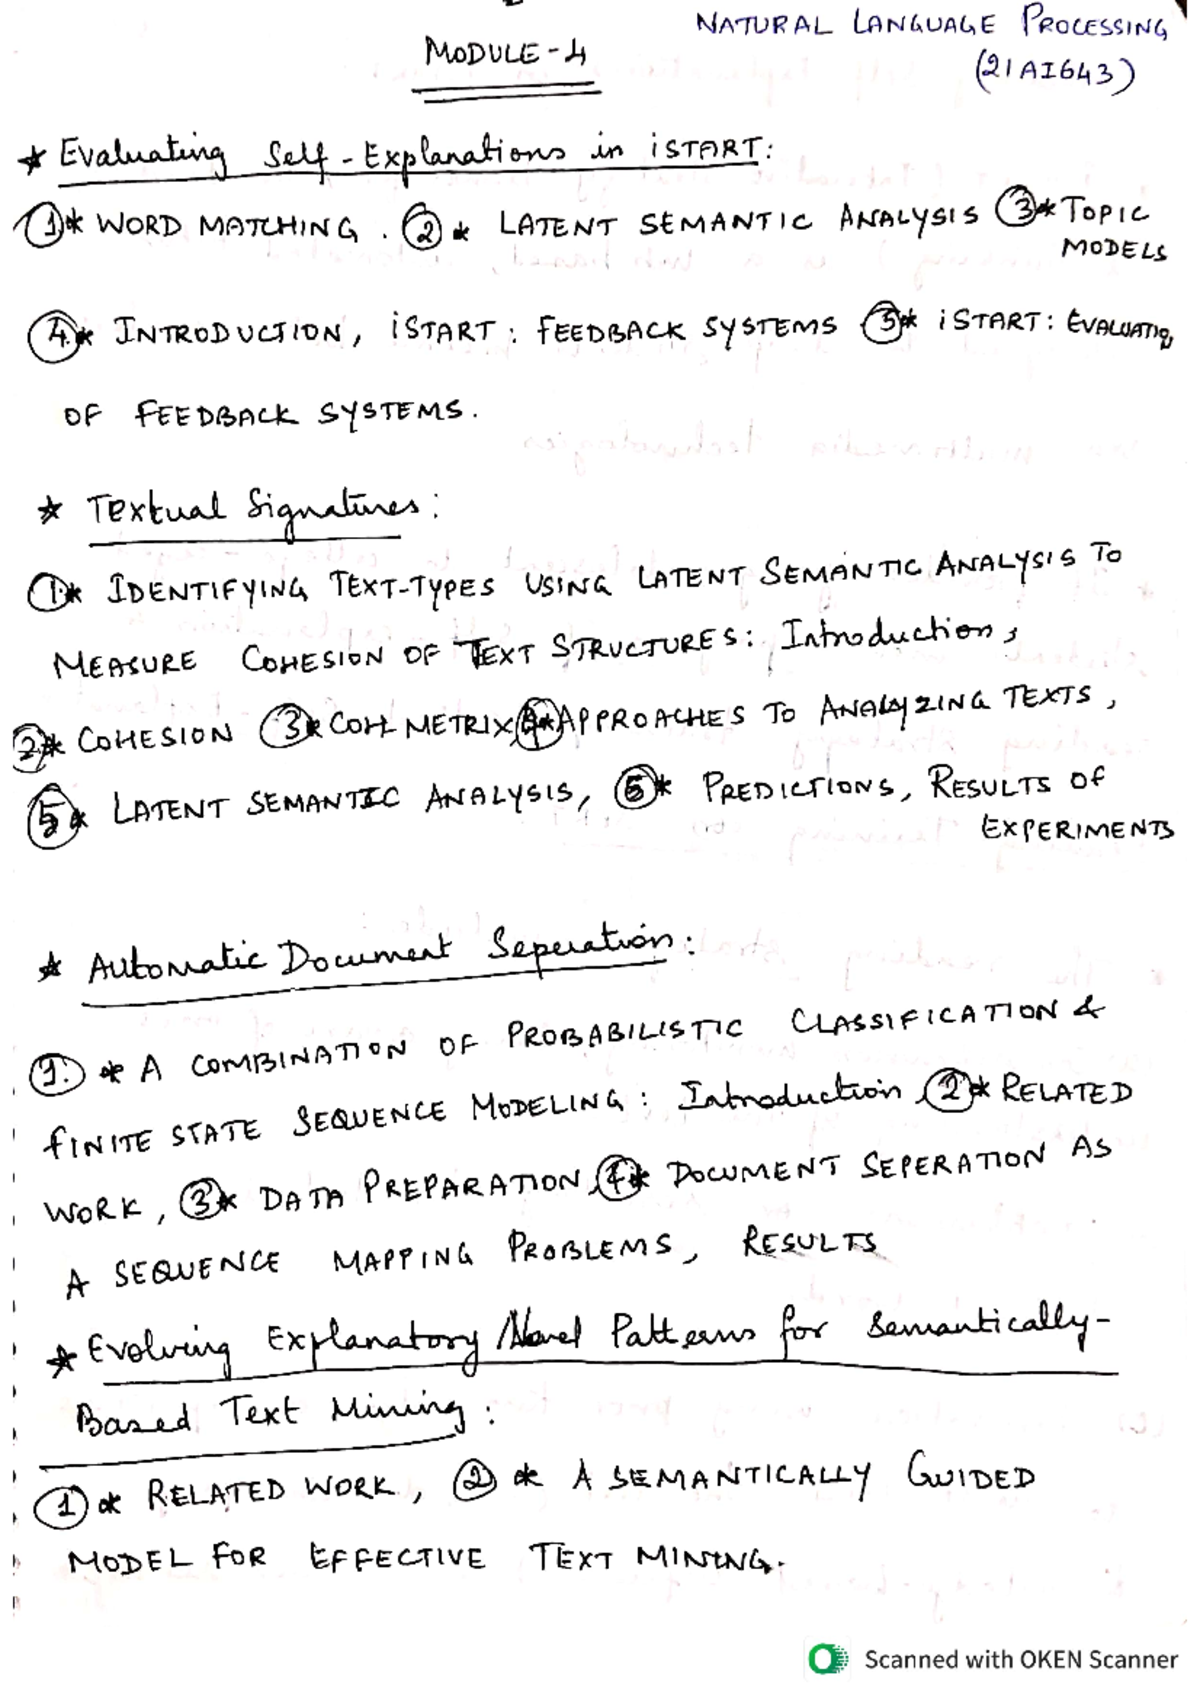 NATURAL LANGUAGE PROCESSING
MODULE-4
(21AI643)
* Evaluating Self-Explanations in iSTART:
1* WORD MATCHING. 2* LATENT SEMANTIC ANALYSIS 3* TOPIC
MODELS
4* INTRODUCTION, iSTART: FEEDBACK SYSTEMS 5* iSTART: EVALUATION
OF FEEDBACK SYSTEMS.
* Textual Signatures:
1* IDENTIFYING TEXT-TYPES USING LATENT SEMANTIC ANALYSIS TO
MEASURE COHESION OF TEXT STRUCTURES: Introduction,
2* COHESION 3* COH METRIX, 4* APPROACHES TO ANALYZING TEXTS,
5* LATENT SEMANTIC ANALYSIS, 6* PREDICTIONS, RESULTS OF
EXPERIMENTS
* Automatic Document Seperation:
1. * A COMBINATION OF PROBABILISTIC CLASSIFICATION &
FINITE STATE SEQUENCE MODELING: Introduction, 2* RELATED
WORK, 3* DATA PREPARATION, 4* DOCUMENT SEPERATION AS
A SEQUENCE MAPPING PROBLEMS, RESULTS
* Evolving Explanatory Novel Patterns for Semantically-
Based Text Mining:
1 * RELATED WORK, 2 * A SEMANTICALLY GUIDED
MODEL FOR EFFECTIVE TEXT MINING.
Scanned with OKEN Scanner